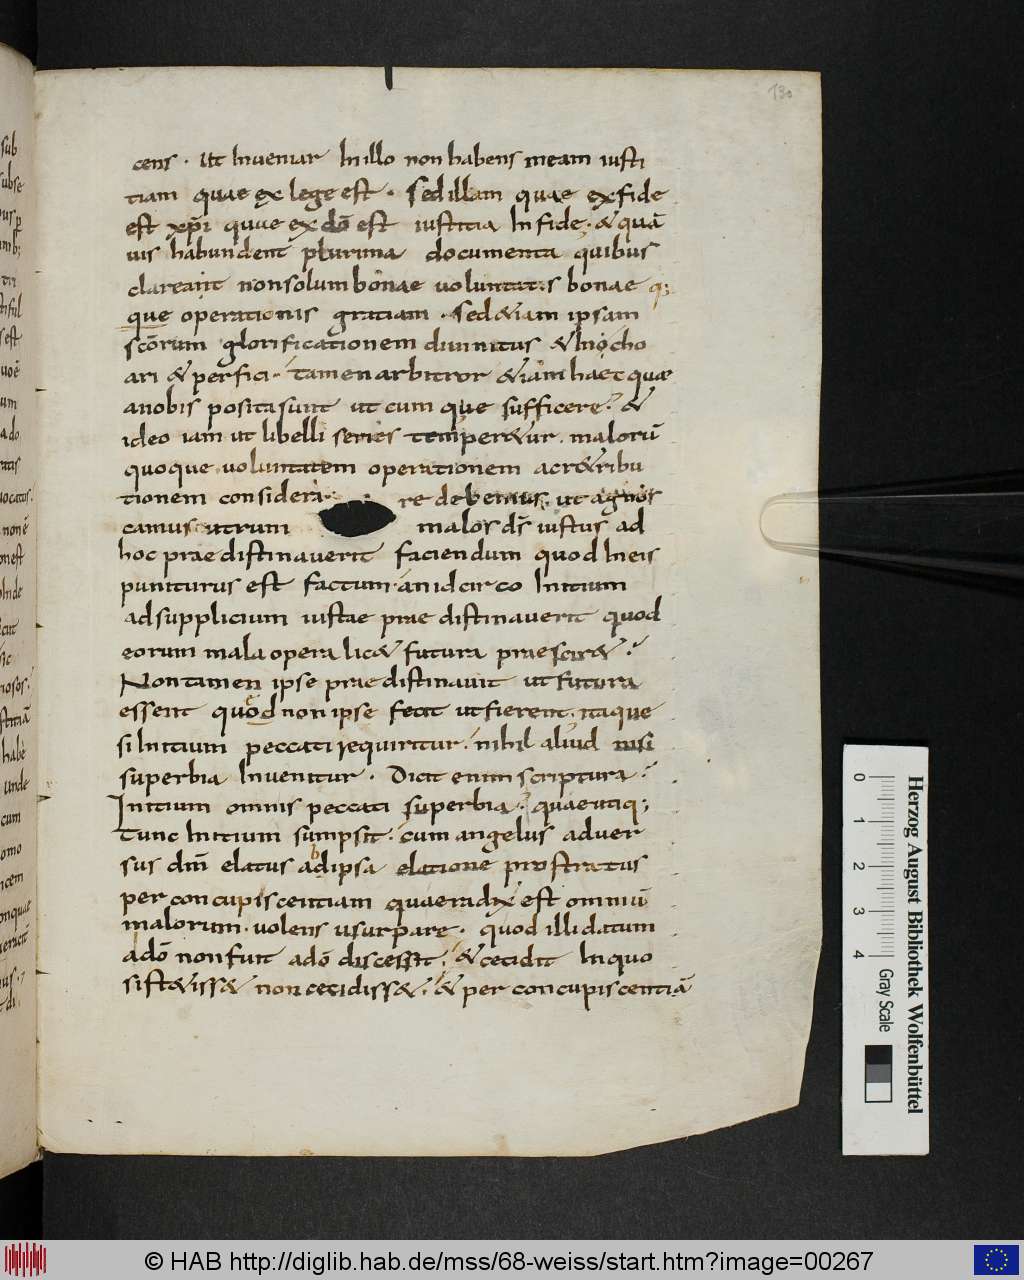 130
cens · ut Inueniar In illo non habens meam iusti
tiam quae ex lege est · sed illam quae ex fide
est xp̄i quae ex dō est iustitia In fide; & quā
uis habundent plurima documenta quibus
clareant non solum bonae uoluntatis bonae q;
que operationis gratiam · sed &iam ipsam
scōrum glorificationem diuinitus & Incho
ari & perfici · tamen arbitror &iam haec quae
a nobis posita sunt ut cumque sufficere; &
ideo iam ut libelli series temper&ur · malorū
quoque uoluntatem operationem ac r&ribu
tionem considerare debemus; ut agnos
camus utrum malos dс̄ iustus ad
hoc praedistinauerit faciendum quod In eis
puniturus est factum · an idcirco Initium
ad supplicium iustae praedistinauerit quod
eorum mala opera lic& futura praescir&;
Non tamen ipse praedistinauit ut futura
essent quod non ipse fecit ut fierent; itaque
si Initium peccati requiritur · nihil aliud nisi
superbia Inuenitur · Dicit enim scriptura;
Initium omnis peccati superbia; quae utiq;
tunc Initium sumpsit · cum angelus aduer
sus dm̄ elatus ab ipsa elatione prostratus
per concupiscentiam quae radix est omniū
malorum · uolens usurpare · quod illi datum
a dō non fuit a dō discessit; & cecidit In quo
si st&iss& non cecidiss&; & per concupiscentiā
Herzog August Bibliothek Wolfenbüttel
0 1 2 3 4
Gray Scale
© HAB http://diglib.hab.de/mss/68-weiss/start.htm?image=00267